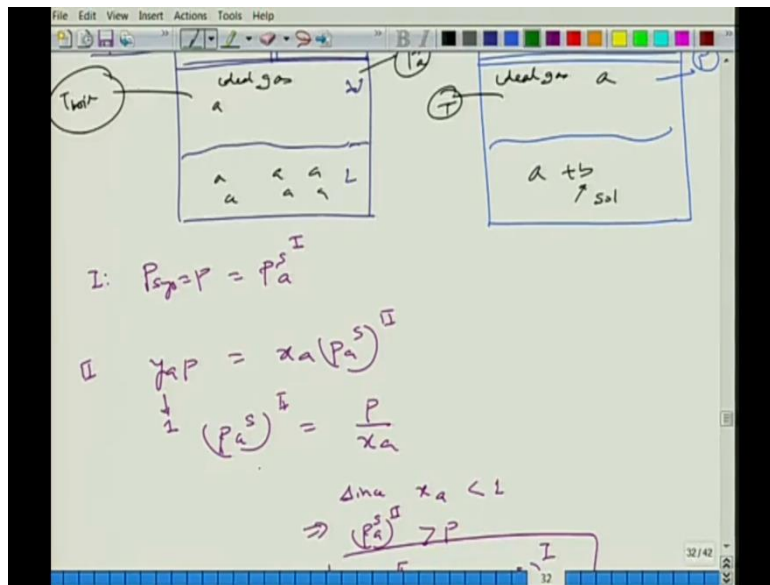 File Edit View Insert Actions Tools Help
B I
ideal gas
a
T boil
a a a L
a a a
ideal gas a
T
a + b
sol
I: Psys = P = Pa^s I
II ya P = xa (Pa^s)^II
1 (Pa^s)^II = P / xa
Since xa < 1
⇒ (Pa^s)^II > P
I
32/42
32